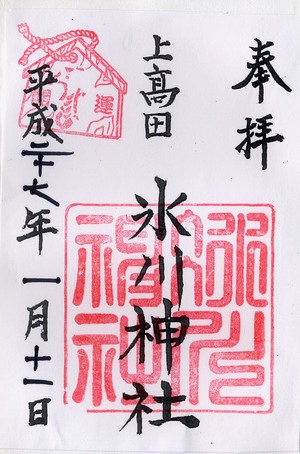 奉拝
上高田
氷川神社
平成二十七年一月十一日
氷川神社
運